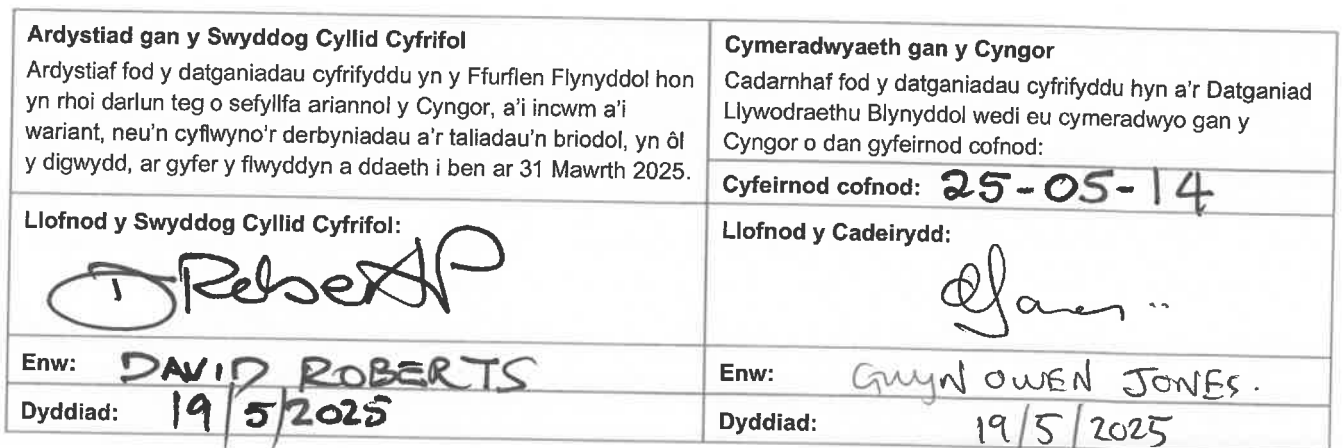 Ardystiad gan y Swyddog Cyllid Cyfrifol
Ardystiaf fod y datganiadau cyfrifyddu yn y Ffurflen Flynyddol hon
yn rhoi darlun teg o sefyllfa ariannol y Cyngor, a'i incwm a'i
wariant, neu'n cyflwyno'r derbyniadau a'r taliadau'n briodol, yn ôl
y digwydd, ar gyfer y flwyddyn a ddaeth i ben ar 31 Mawrth 2025.
Llofnod y Swyddog Cyllid Cyfrifol:
Enw: DAVID ROBERTS
Dyddiad: 19/5/2025
Cymeradwyaeth gan y Cyngor
Cadarnhaf fod y datganiadau cyfrifyddu hyn a'r Datganiad
Llywodraethu Blynyddol wedi eu cymeradwyo gan y
Cyngor o dan gyfeirnod cofnod:
Cyfeirnod cofnod: 25-05-14
Llofnod y Cadeirydd:
Enw: GWYN OWEN JONES.
Dyddiad: 19/5/2025